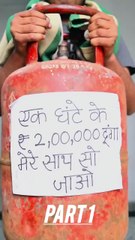 एक घंटे के
₹ 2,00,000 दूंगा
मेरे साथ सो
जाओ
PART1